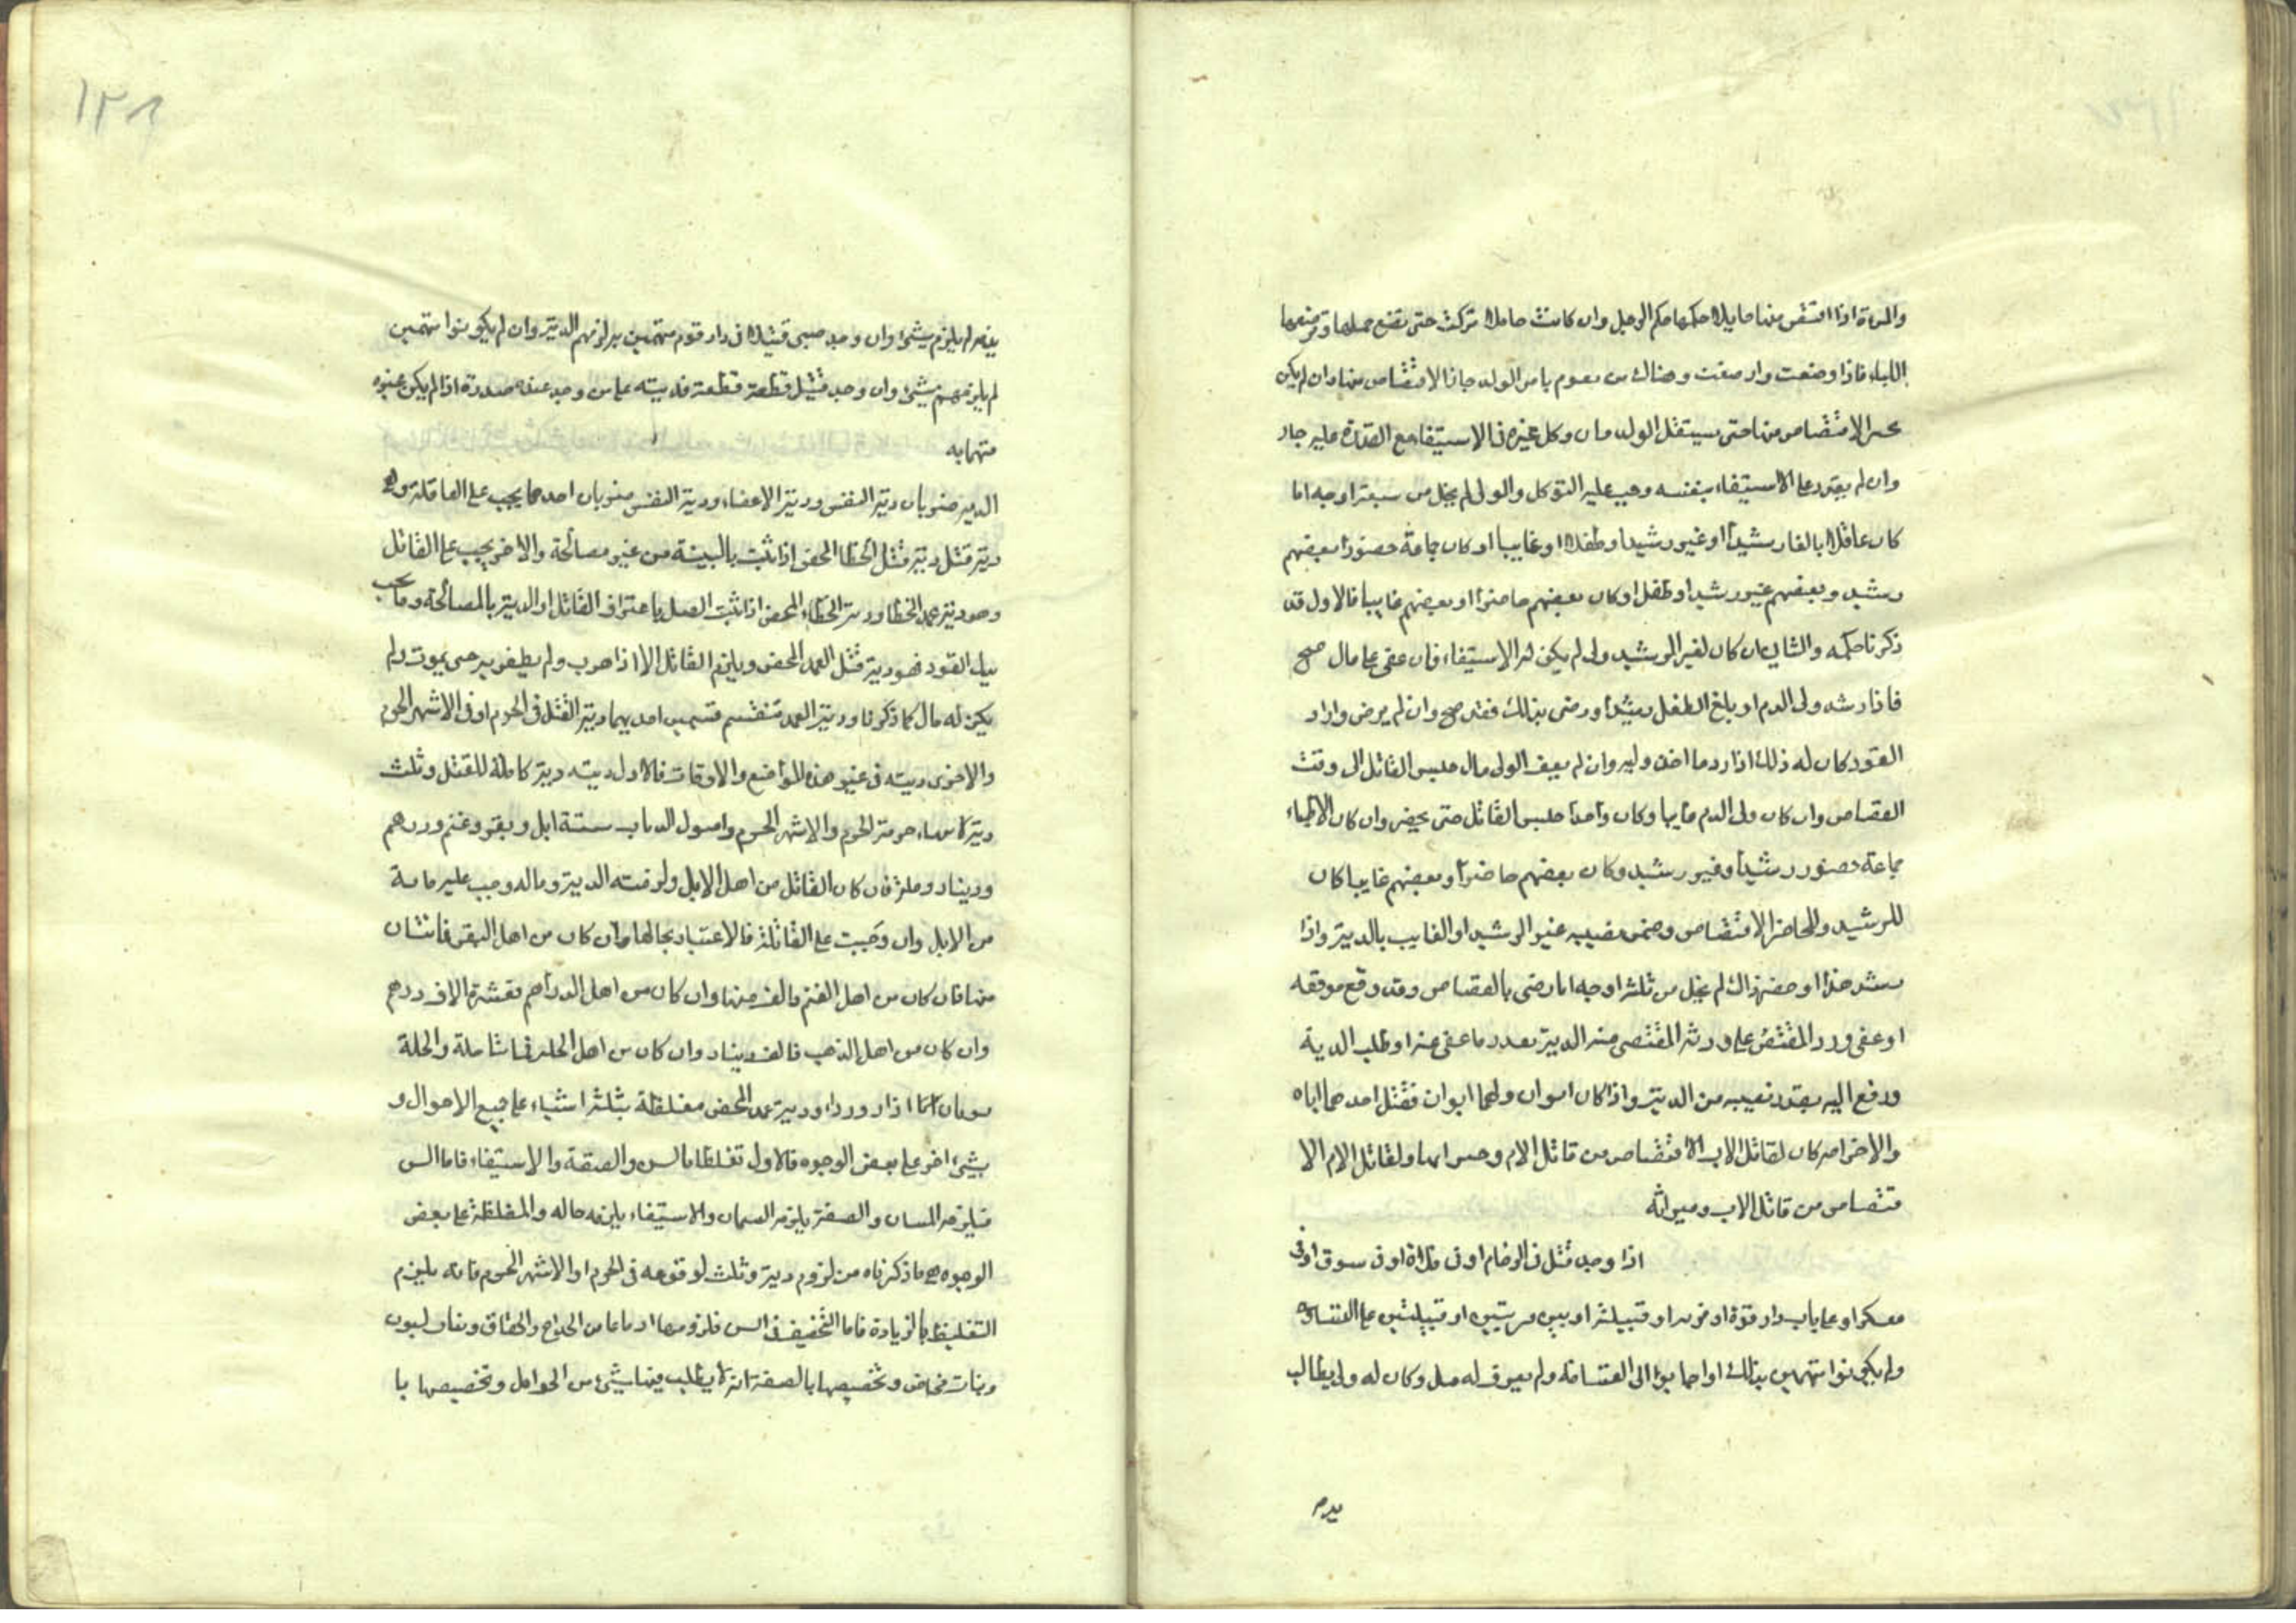 والمرءة اذا اقتص منها حايلا حكمها حكم الرجل وان كانت حاملا تركت حتى تضع حملها وترضعها
اللباء فاذا وضعت وارضعت وهناك من يقوم بامر الولد جاز الاقتصاص منها وان لم يكن
الاقتصاص منها حتى يستقل الولد وكل غيره فى الاستيفاء مع القدرة عليه جاز
وان لم يقدر على الاستيفاء بنفسه وجب عليه التوكل والولى لم يخل من سبعة اوجه اما
كان عاقلا بالغا رشيدا او غير رشيد او طفلا او غايبا او كان جماعة حضورا بعضهم
رشيد وبعضهم غير رشيد او طفل او كان بعضهم حاضرا او بعضهم غايبا فالاول قد
ذكرنا حكمه والثانى ان كان لغير الرشيد ولى لم يكن له الاستيفاء فان عفى على مال صح
فاذا رشد ولى الدم او بلغ الطفل رشيدا ورضى بذلك فقد صح وان لم يرض واراد
القود كان له ذلك اذا رد ما اخذ وليه وان لم يعف الولى مال حبس القاتل الى وقت
القصاص وان كان ولى الدم غايبا وكان واحدا حبس القاتل حتى يحضر وان كان الاولياء
جماعة حضور رشيد وغير رشيد وكان بعضهم حاضرا وبعضهم غايبا كان
للرشيد والحاضر الاقتصاص وضمن نصيب غير الرشيد او الغايب بالدية واذا
رشد هذا او حضر ذاك لم يخل من ثلثة اوجه اما رضى بالقصاص وقد وقع موقعه
او عفى ورد المقتص على ورثة المقتص منه الدية بعدد ما عفى عنه او طلب الدية
ودفع اليه بقدر نصيبه من الدية واذا كان اخوان ولهما ابوان فقتل احدهما اباه
والاخر امه كان لقاتل الاب الاقتصاص من قاتل الام ولقاتل الام الا
قتصاص من قاتل الاب وميراثه
اذا وجد قتل فى الزحام او فى فلاة او فى سوق او فى
معسكر او على باب دار قوم او قرية او قبيلة او بين قريتين او قبيلتين على التساوى
ولم يكونوا متهمين بذلك او اجابوا الى القسامة ولم يعرف له وكان له ولى يطالب
يدم
لم يلزم شىء وان وجد صبى قتيلا فى دار قوم متهمين به لزمهم الدية وان لم يكونوا متهمين
لم يلزمهم شىء وان وجد قتيل قطعة قطعة فديته على من وجد عنده صدره اذا لم يكن غيره
متهما به
الدية ضربان دية النفس ودية الاعضاء ودية النفس ضربان احدهما يجب على العاقلة وهى
دية قتل دية قتل الخطا المحض اذا ثبت بالبينة من غير مصالحة والاخر يجب على القاتل
وهو دية عمد الخطا ودية الخطاء المحض اذا ثبت القتل باعتراف القاتل او الدية بالمصالحة وما يجب
القود فهو دية قتل العمد المحض ويلزم القاتل الا اذا هرب ولم يظفر به حتى يموت ولم
يكن له مال كما ذكرنا ودية العمد تنقسم قسمين احديهما دية القتل فى الحرم او فى الاشهر الحرم
والاخرى ديته فى غير هذه المواضع والاوقات فالاول ديته دية كاملة للقتل وثلث
دية حرمة الحرم والاشهر الحرم واصول الديات ستة ابل وبقر وغنم ودرهم
ودينار وحلة فان كان القاتل من اهل الابل ولزمته الدية وماله وجب عليه ماية
من الابل وان وجبت على العاقلة فالاعتبار بحالها وان كان من اهل البقر فمائتان
منها فان كان من اهل الغنم فالف منها وان كان من اهل الدراهم فعشرة الاف درهم
وان كان من اهل الذهب فالف دينار وان كان من اهل الحلة فمائتا حلة والحلة
ثوبان ازار ورداء ودية عمد المحض مغلظة بثلثة اشياء على جميع الاحوال و
بشىء اخر على بعض الوجوه فالاول تغلظها بالسن والصفة والاستيفاء فاما السن
فيلزمه المسان والصفة يلزمه السمان والاستيفاء يلزمه حاله والمغلظة على بعض
الوجوه هو ما ذكرناه من لزوم دية وثلث لوقوعه فى الحرم او الاشهر الحرم فانه يلزم
التغليظ بالزيادة فاما التخفيف فى السن من الجذاع والحقاق وبنات لبون
وبنات مخاض وتخصيصها بالصفة انه لا يطلب فيها شىء من الحوامل وتخصيصها با